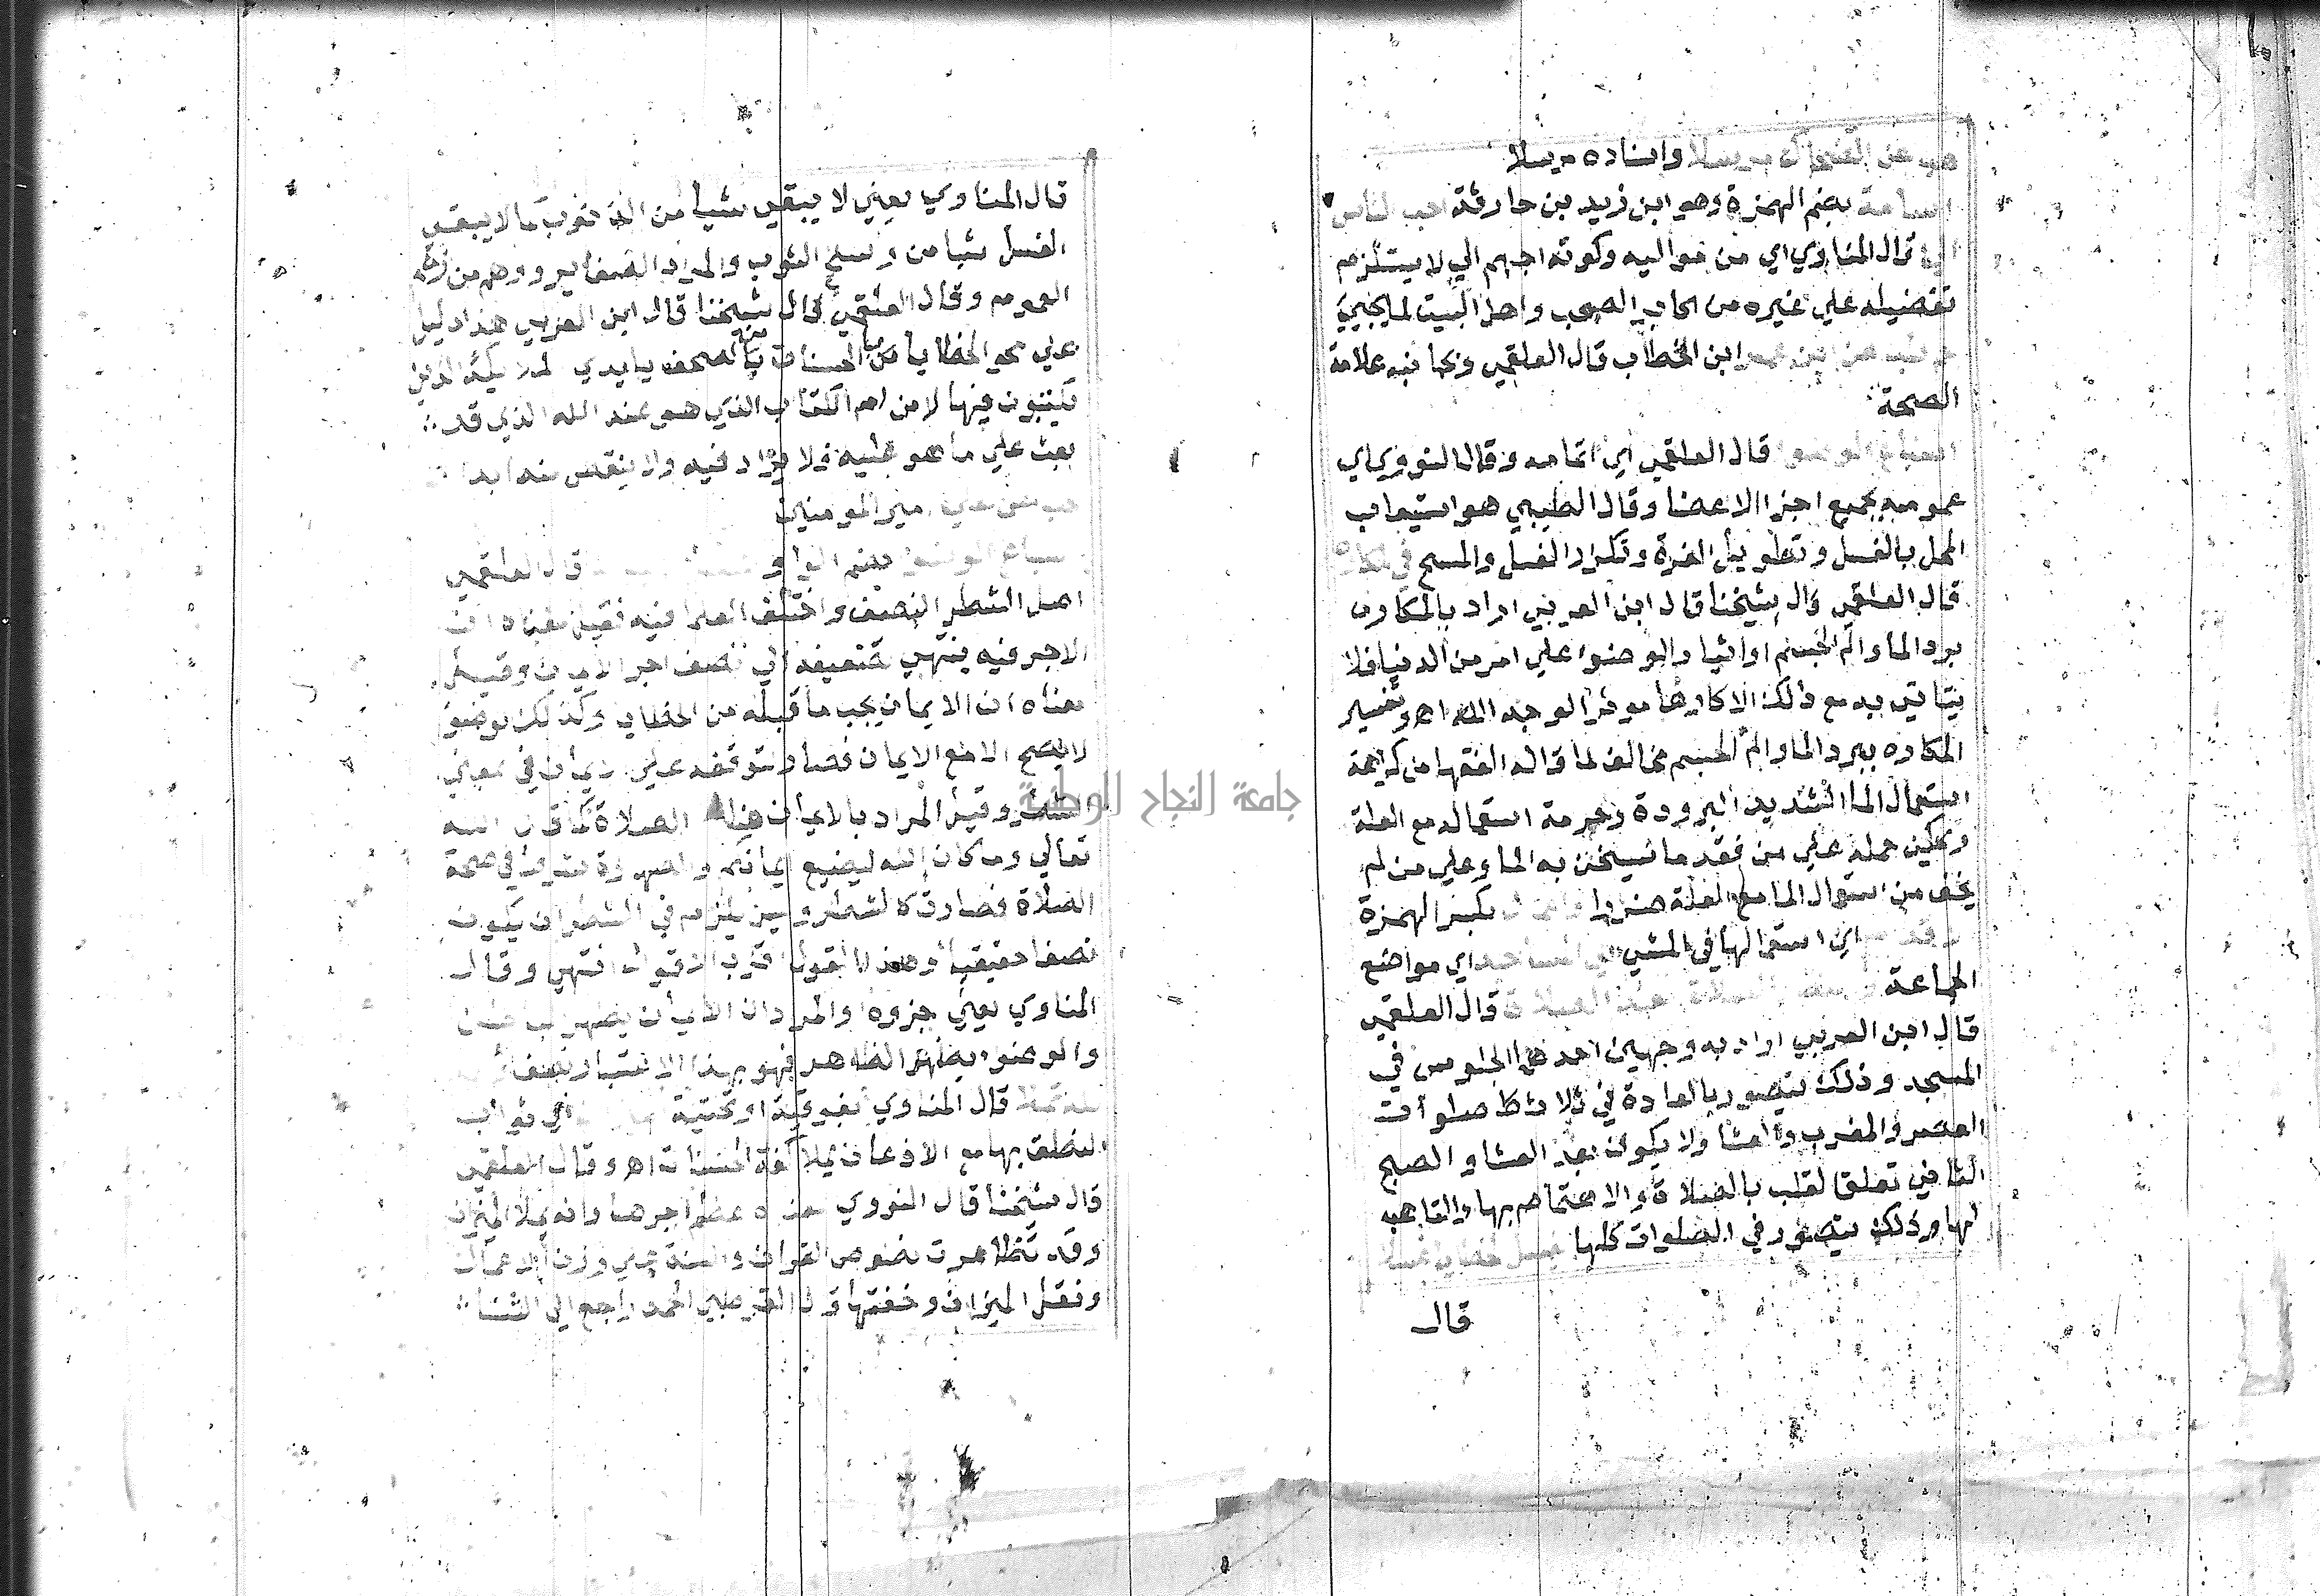 هب عن الضحاك مرسلا واسناده مرسلا
اسامة بضم الهمزة وهو ابن زيد بن حارثة احب الناس
الي قال المناوي اي من مواليه وكونه احبهم اليه لا يستلزم
تفضيله على غيره من اكابر الصحب واهل البيت لما يجيئ
ابن الخطاب قال العلقمي وبجانبه علامة
الصحة
اسباغ الوضوا قال العلقمي اي اتمامه وقال النووي اي
عمومه بجميع اجزا الاعضا وقال الطيبي هو استيعاب
المحل بالغسل وتطويل الغرة وتكرار الغسل والمسح في المكاره
قال العلقمي قال شيخنا قال ابن العربي اراد بالمكاره
برد الما والم الجسم او اثيار الوضوء علي امر من الدنيا فلا
يتاتي به مع ذلك الا كارها موثرا لوجه الله اهـ وتفسير
المكاره ببرد الما والم الجسم مخالف لما قاله الفقها من كراهة
استعمال الما الشديد البرودة وحرمة استعماله مع العلة
ويمكن حمله على من فقد ما يسخن به الما وعلي من لم
يخف من استعمال الما مع العلة ضررا واعمال بكسر الهمزة
اي استعمالها في المشي الي المساجد اي مواضع
الجماعة وانتظار الصلاة بعد الصلاة قال العلقمي
قال ابن العربي اراد به وجهين احدهما الجلوس في
المسجد وذلك يتصور بالعادة في ثلاث صلوات
العصر والمغرب والعشا ولا يكون بعد العشا والصبح
الثاني تعلق القلب بالصلاة والاهتمام بها والتاهب
لها وذلك يتصور في الصلوات كلها يغسل الخطايا غسلا
قال
قال المناوي يعني لا يبقي شيا من الذنوب كما لا يبقي
الغسل شيا من وسخ الثوب والمراد الصغاير ووهم من زعم
العموم وقال العلقمي قال شيخنا قال ابن العربي هذا دليل
علي محو الخطايا من الحسنات من الصحف بايدي الملايكة الذين
يكتبون فيها لا من ام الكتاب الذي هو عند الله الذي قد
بعث علي ما هو عليه فلا يزاد فيه ولا ينقص منه ابدا
هب عن علي امير المومنين
اسباغ الوضوا بضم الواو قال العلقمي
اصل الشطر النصف واختلف العلما فيه فقيل معناه ان
الاجر فيه ينتهي تضعيفه الي نصف اجر الايمان وقيل
معناه ان الايمان يجب ما قبله من الخطايا وكذلك الوضوء
لا يصح الا مع الايمان فصار لتوقفه علي الايمان في معني
الشطر وقيل المراد بالايمان هنا الصلاة كما قال الله
تعالي وما كان الله ليضيع ايمانكم والطهارة شرط في صحة
الصلاة فصارت كالشطر وليس يلزم في الشطر ان يكون
نصفا حقيقيا وهذا القول اقرب الاقوال انتهي وقال
المناوي يعني جزوه والمراد ان الايمان يطهر الباطن
والوضوء يطهر الظاهر فهو بهذا الاعتبار نصف
قال المناوي بفوقية او تحتية اي ثواب
النطق بها مع الاذعان يملا كفة الحسنات اهـ وقال العلقمي
قال شيخنا قال النووي معناه عظم اجرها وانه يملا الميزان
وقد تظاهرت نصوص القران والسنة علي وزن الاعمال
وثقل الميزان وخفتها قال القرطبي الحمد راجع الي الثنا
جامعة النجاح الوطنية